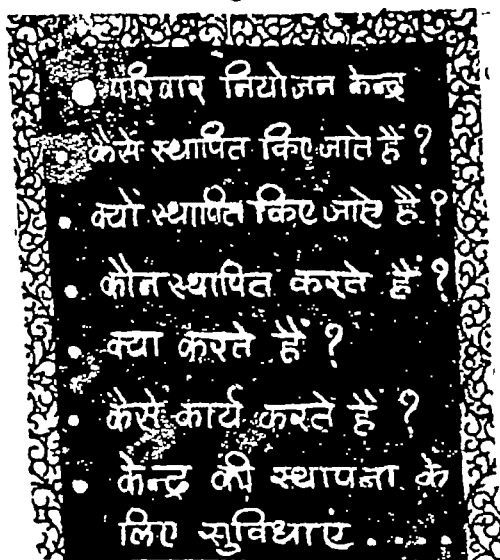 • परिवार नियोजन केन्द्र
• कैसे स्थापित किए जाते हैं ?
• क्यों स्थापित किए जाते हैं ?
• कौन स्थापित करते हैं ?
• क्या करते हैं ?
• कैसे कार्य करते हैं ?
• केन्द्र की स्थापना के
लिए सुविधाएं . . . . .